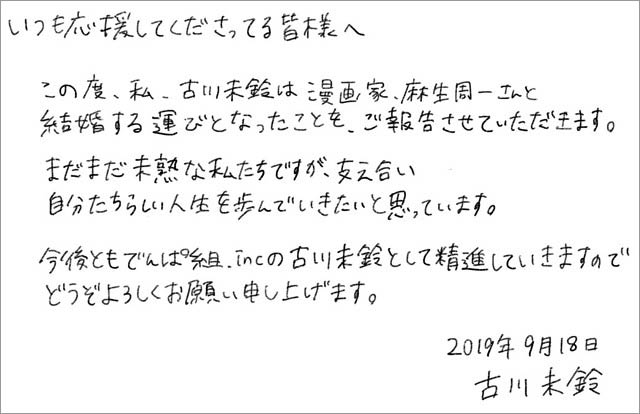 いつも応援してくださってる皆様へ
この度、私、古川未鈴は漫画家、麻生周一さんと
結婚する運びとなったことを、ご報告させていただきます。
まだまだ未熟な私たちですが、支え合い
自分たちらしい人生を歩んでいきたいと思っています。
今後ともでんぱ組.incの古川未鈴として精進していきますので
どうぞよろしくお願い申し上げます。
2019年9月18日
古川未鈴